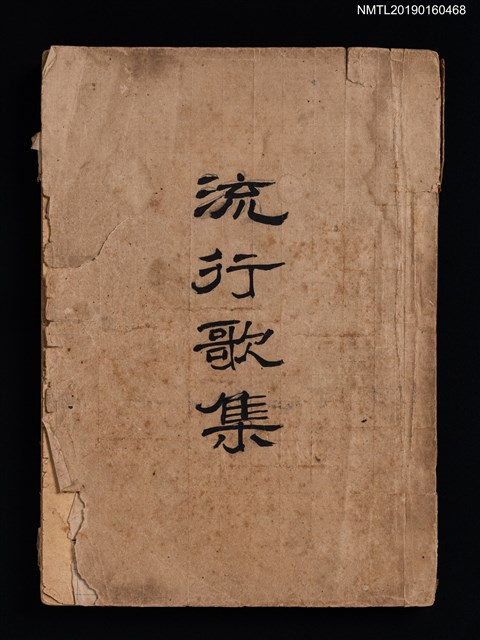 NMTL20190160468
流行歌集